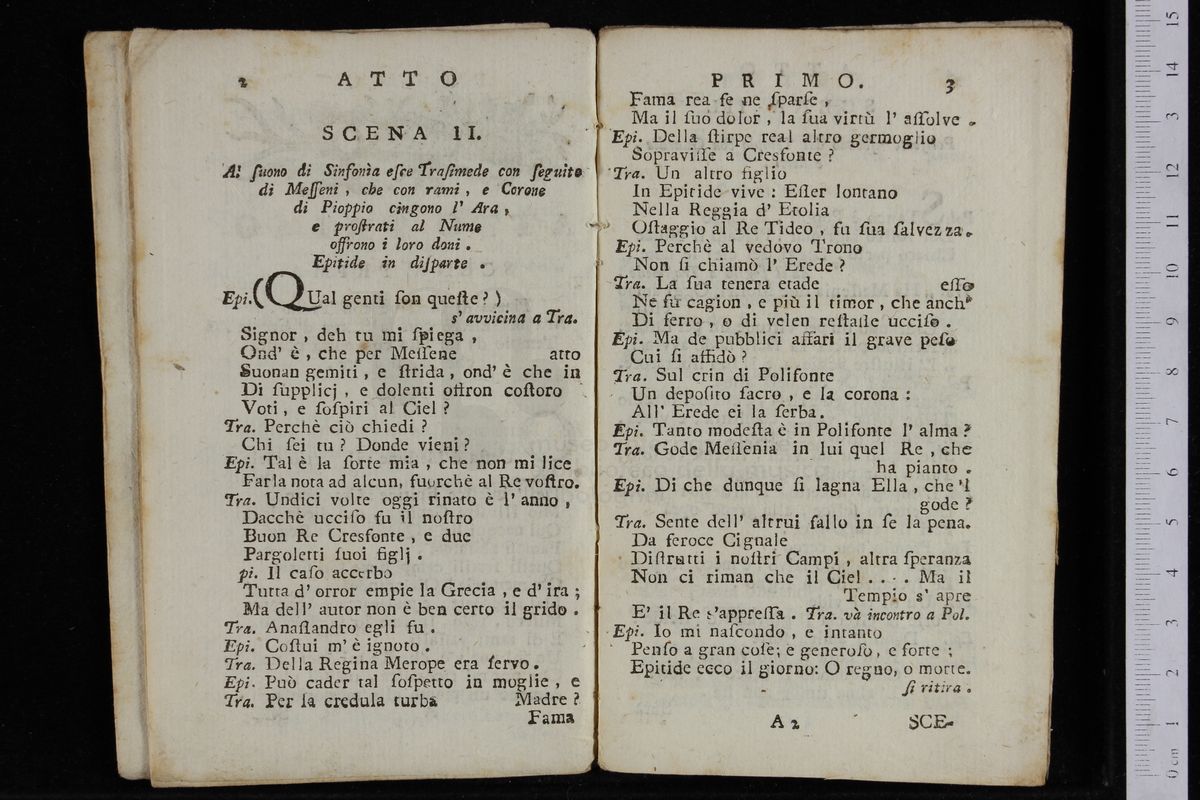 2 ATTO
SCENA II.
Al ſuono di Sinfonìa eſce Traſimede con ſeguito
di Meſſeni, che con rami, e Corone
di Pioppio cingono l' Ara,
e proſtrati al Nume
offrono i loro doni.
Epitide in diſparte.
Epi. (QUal genti ſon queſte?)
s' avvicina a Tra.
Signor, deh tu mi ſpiega,
Ond' è, che per Meſſene atto
Suonan gemiti, e ſtrida, ond' è che in
Di ſupplicj, e dolenti offron coſtoro
Voti, e ſoſpiri al Ciel?
Tra. Perchè ciò chiedi?
Chi ſei tu? Donde vieni?
Epi. Tal è la ſorte mia, che non mi lice
Farla nota ad alcun, fuorchè al Re voſtro.
Tra. Undici volte oggi rinato è l' anno,
Dacchè ucciſo fu il noſtro
Buon Re Cresfonte, e due
Pargoletti ſuoi figlj.
pi. Il caſo accerbo
Tutta d' orror empie la Grecia, e d' ira;
Ma dell' autor non è ben certo il grido.
Tra. Anaſſandro egli fu.
Epi. Coſtui m' è ignoto.
Tra. Della Regina Merope era ſervo.
Epi. Può cader tal ſoſpetto in moglie, e
Tra. Per la credula turba Madre?
Fama
PRIMO. 3
Fama rea ſe ne ſparſe,
Ma il ſuo dolor, la ſua virtù l' aſſolve.
Epi. Della ſtirpe real altro germoglio
Sopraviſſe a Cresfonte?
Tra. Un altro figlio
In Epitide vive: Eſſer lontano
Nella Reggia d' Etolia
Oſtaggio al Re Tideo, fu ſua ſalvezza.
Epi. Perchè al vedovo Trono
Non ſi chiamò l' Erede?
Tra. La ſua tenera etade eſſo
Ne fu cagion, e più il timor, che anch'
Di ferro, o di velen reſtaſſe ucciſo.
Epi. Ma de pubblici affari il grave peſo
Cui ſi affidò?
Tra. Sul crin di Polifonte
Un depoſito ſacro, e la corona:
All' Erede ei la ſerba.
Epi. Tanto modeſta è in Polifonte l' alma?
Tra. Gode Meſſenia in lui quel Re, che
ha pianto.
Epi. Di che dunque ſi lagna Ella, che 'l
gode?
Tra. Sente dell' altrui fallo in ſe la pena.
Da feroce Cignale
Diſtrutti i noſtri Campi, altra ſperanza
Non ci riman che il Ciel.... Ma il
Tempio s' apre
E' il Re s'appreſſa. Tra. và incontro a Pol.
Epi. Io mi naſcondo, e intanto
Penſo a gran coſe; e generoſo, e forte;
Epitide ecco il giorno: O regno, o morte.
ſi ritira.
A 2 SCE-
15
14
3
12
11
10
9
8
7
6
5
4
3
2
1
0 cm